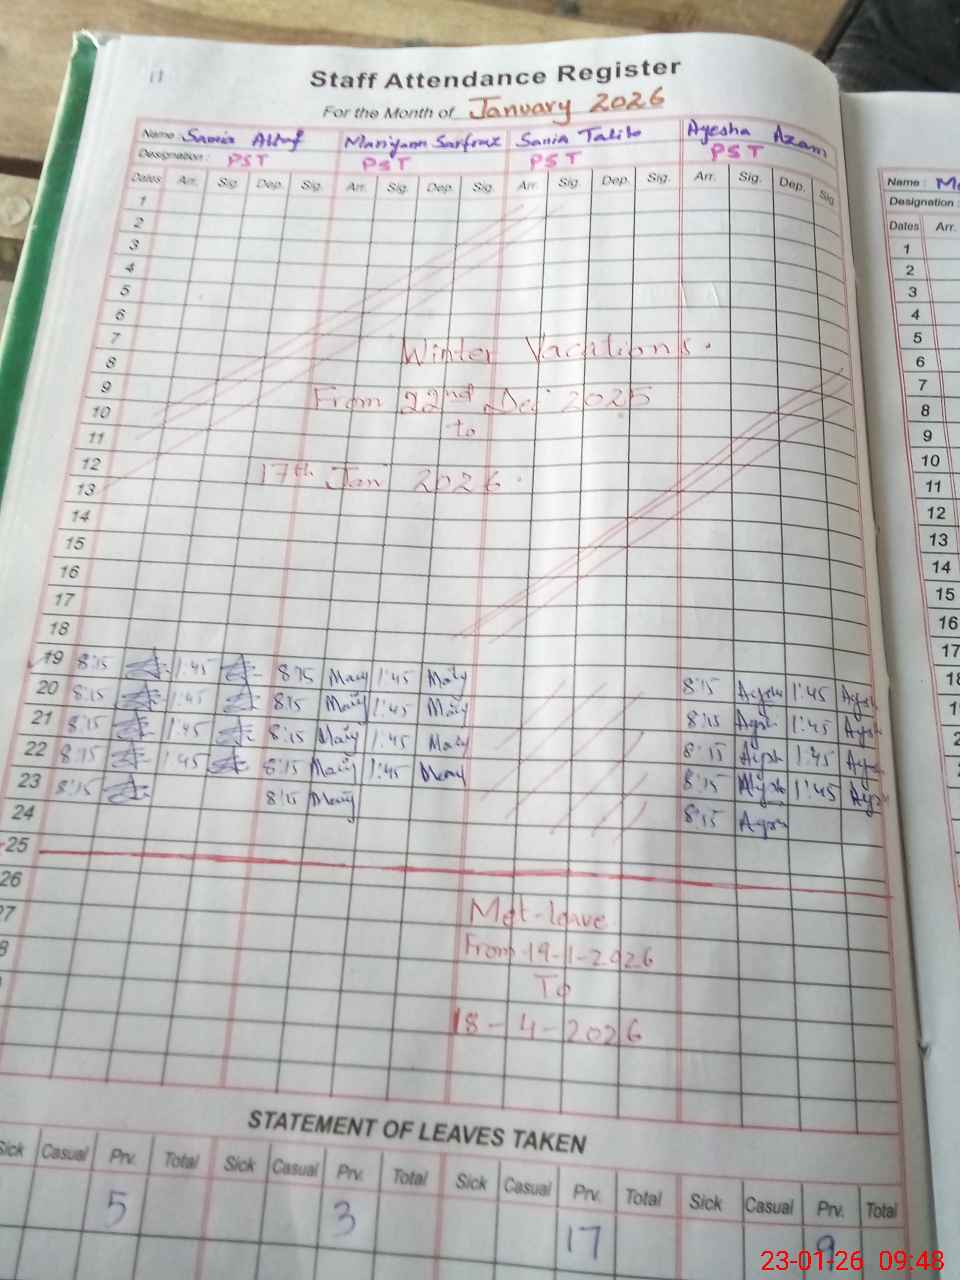 11
Staff Attendance Register
For the Month of January 2026
Name : Samia Altaf Mariyam Sarfraz Sania Talib Ayesha Azam
Designation : PST PST PST PST
Dates Arr. Sig. Dep. Sig. Arr. Sig. Dep. Sig. Arr. Sig. Dep. Sig. Arr. Sig. Dep. Sig.
1
2
3
4
5
6
7
Winter Vacations.
8
9
From 22nd Dec 2025
10
to
11
12
17th Jan 2026.
13
14
15
16
17
18
19 8:15 1:45 8:15 Mary 1:45 Mary 8:15 Ayesh 1:45 Aysh
20 8:15 1:45 8:15 Mary 1:45 Mary 8:15 Aysh 1:45 Aysh
21 8:15 1:45 8:15 Mary 1:45 Mary 8:15 Aysh 1:45 Aysh
22 8:15 1:45 8:15 Mary 1:45 Mary 8:15 Aysh 1:45 Aysh
23 8:15 8:15 Mary 8:15 Aysh
24
25
26
27
Mat-leave
8
From 19-1-2026
To
18-4-2026
STATEMENT OF LEAVES TAKEN
Sick Casual Prv. Total Sick Casual Prv. Total Sick Casual Prv. Total Sick Casual Prv. Total
5 3 17 9
Name :
Designation :
Dates Arr.
1
2
3
4
5
6
7
8
9
10
11
12
13
14
15
16
17
18
23-01-26 09:48